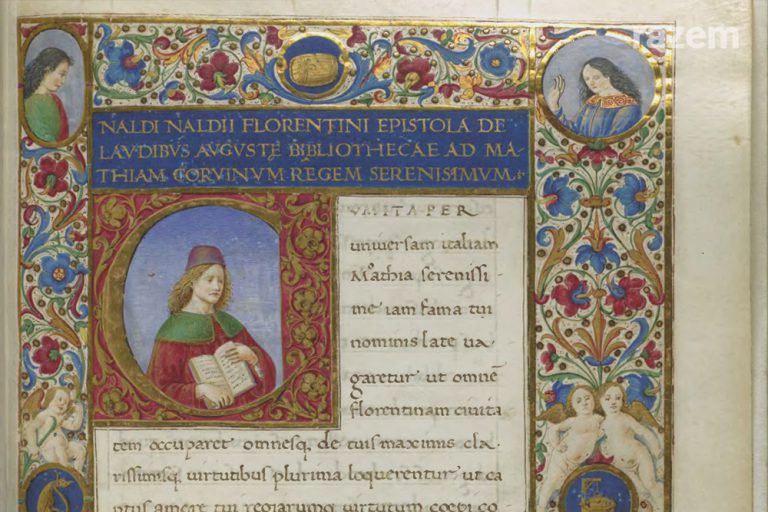 razem
NALDI NALDII FLORENTINI EPISTOLA DE
LAVDIBVS AVGVSTE BIBLIOTHECAE AD MA-
THIAM CORVINVM REGEM SERENISIMVM.
VM ITA PER
universam italiam
Mathia serenissi
me iam fama tui
nominis late va
garetur ut omnē
florentinam civita
tem occuparet omnesq; de tuis maximis cla-
rissimisq; virtutibus plurima loquerentur ut ca
ptus amore tui regiarumq; virtutum coepi co